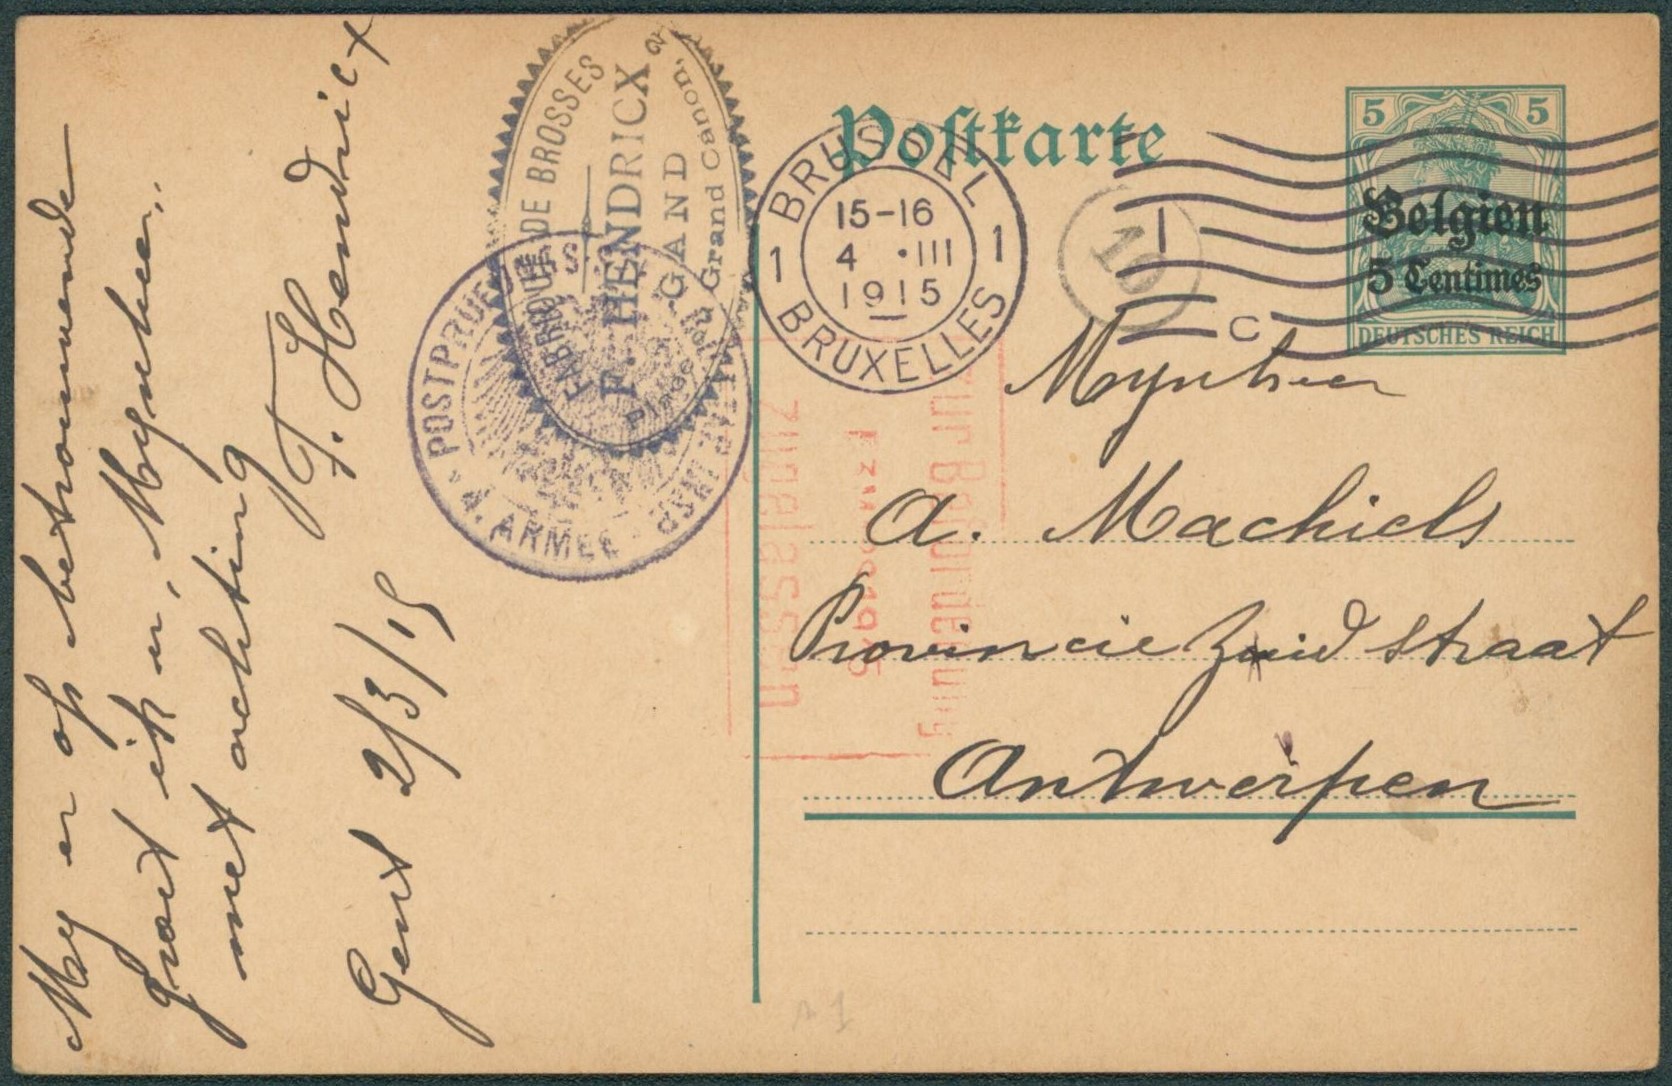 My er op betrouwende
groet ik u, Mynheer,,
met achting
F. Hendricx
Gent 2/3/15
FABRIQUE DE BROSSES
F. HENDRICX
GAND
Place du Grand Canon, 2
POSTPRÜFUNGS
4. ARMEE
Postkarte
BRUSSEL
15-16
4 ·III
1915
1 1
BRUXELLES
10
1
C
5 5
Belgien
5 Centimes
DEUTSCHES REICH
zugelassen
zur Beförderung
Mynheer
A. Machiels
Provincie Zuid straat
Antwerpen